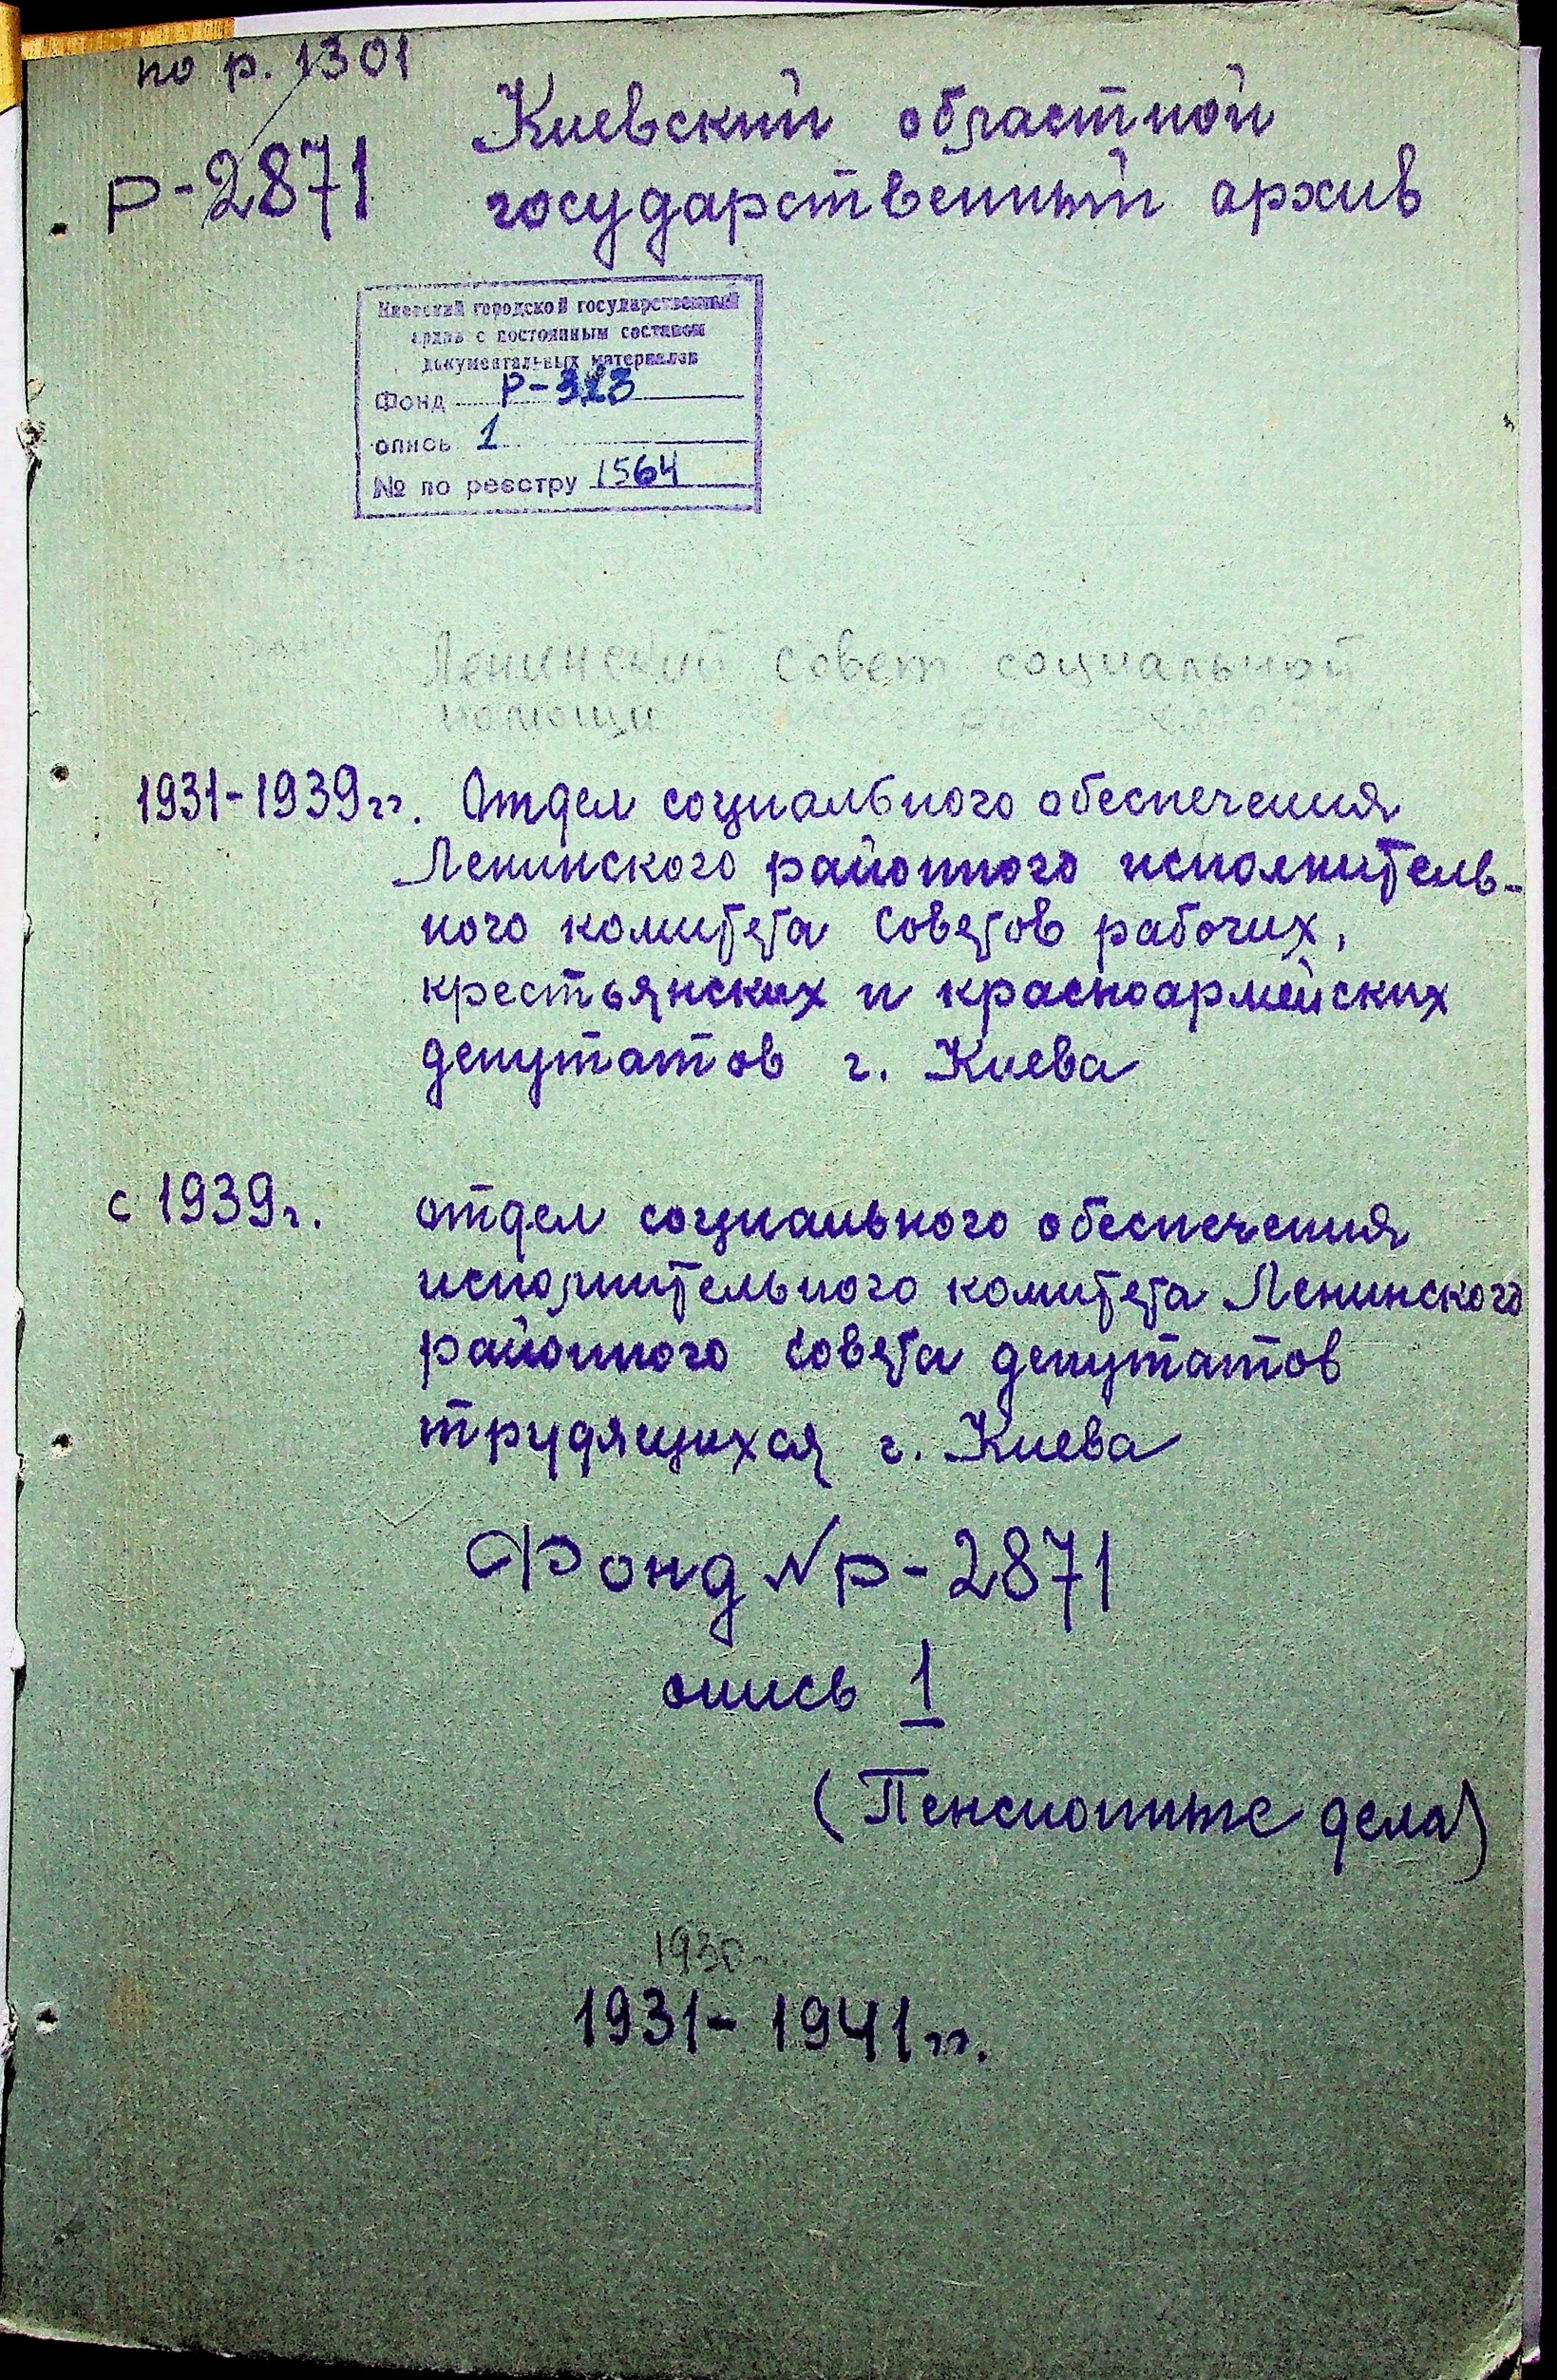 по р. 1301
Р-2871
Киевский областной
государственный архив
Киевский городской государственный
архив с постоянным составом
документальных материалов
Фонд Р-323
опись 1
№ по реестру 1564
Ленинский совет социальной
помощи
1931-1939гг. Отдел социального обеспечения
Ленинского районного исполнитель-
ного комитета Советов рабочих,
крестьянских и красноармейских
депутатов г. Киева
с 1939г. отдел социального обеспечения
исполнительного комитета Ленинского
районного Совета депутатов
трудящихся г. Киева
Фонд № р-2871
опись 1
(Пенсионные дела)
1930
1931-1941гг.